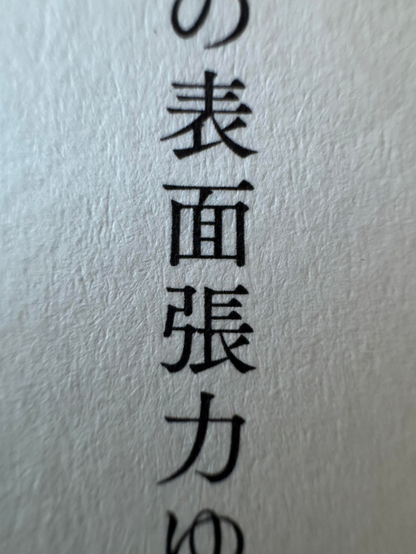 の表面張力ゆ